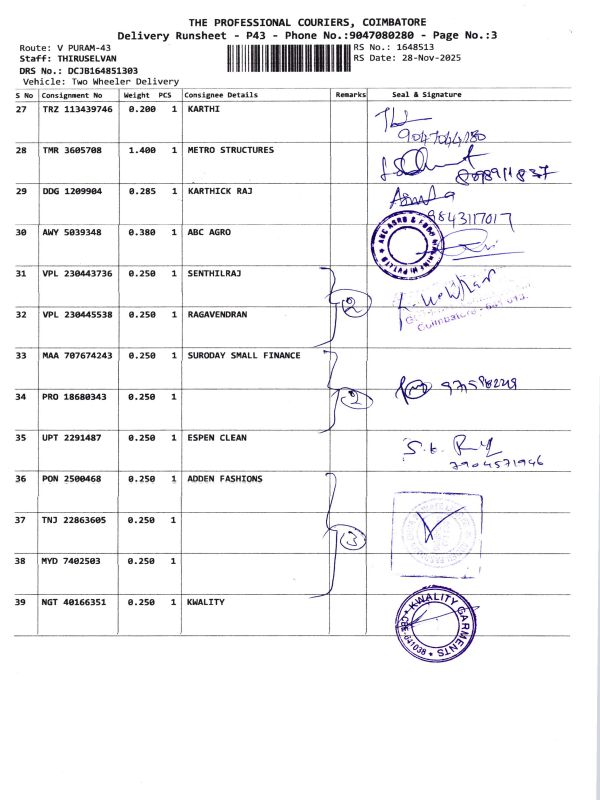 THE PROFESSIONAL COURIERS, COIMBATORE
Delivery Runsheet - P43 - Phone No.:9047080280 - Page No.:3
Route: V PURAM-43
RS No.: 1648513
Staff: THIRUSELVAN
RS Date: 28-Nov-2025
DRS No.: DCJB164851303
Vehicle: Two Wheeler Delivery
S No Consignment No Weight PCS Consignee Details Remarks Seal & Signature
27 TRZ 113439746 0.200 1 KARTHI
9047044180
28 TMR 3605708 1.400 1 METRO STRUCTURES
29 DDG 1209904 0.285 1 KARTHICK RAJ
9843117017
30 AWY 5039348 0.380 1 ABC AGRO
31 VPL 230443736 0.250 1 SENTHILRAJ
2
32 VPL 230445538 0.250 1 RAGAVENDRAN
Coimbatore
33 MAA 707674243 0.250 1 SURODAY SMALL FINANCE
34 PRO 18680343 0.250 1
2
35 UPT 2291487 0.250 1 ESPEN CLEAN
7904571946
36 PON 2500468 0.250 1 ADDEN FASHIONS
37 TNJ 22863605 0.250 1
3
38 MYD 7402503 0.250 1
39 NGT 40166351 0.250 1 KWALITY
KWALITY GARMENTS
CBE-641038